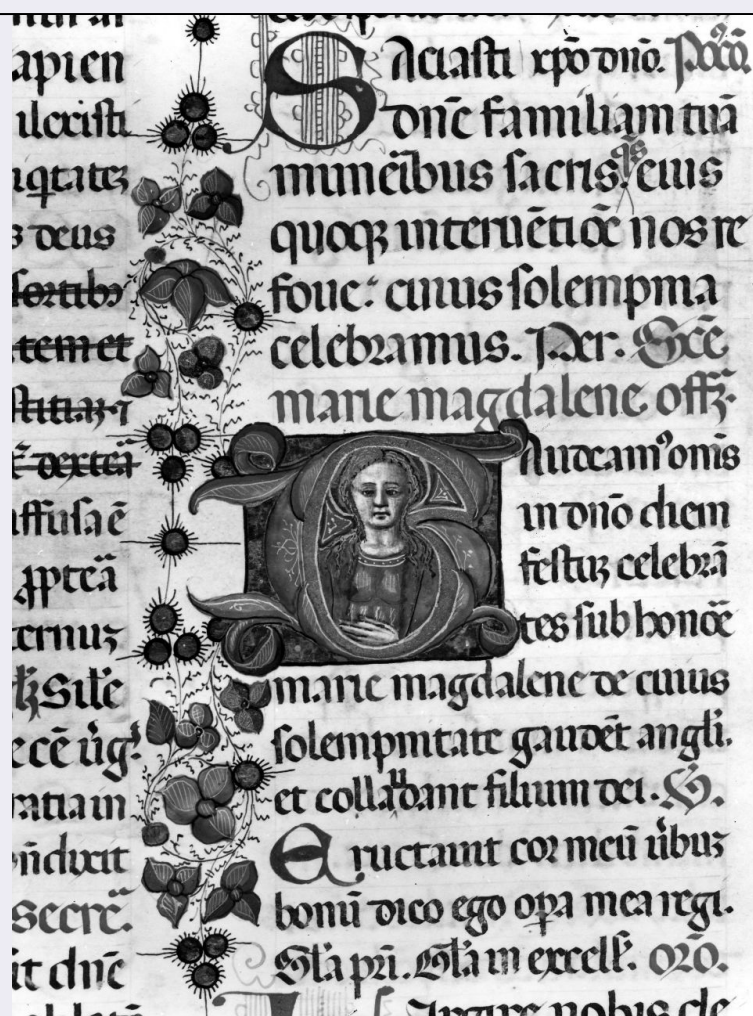 apien
ilexisti
iqtatez
s deus
fortibʒ
tem et
stitiaz ⁊
ẽ dextēā
ffusa ē
ꝓptēā
ernuz
Sile
ecē ūg
ratia in
nduxit
secrē.
it dnē
Saciasti xp̄o dn̄o. Pꝰcō
dn̄e familiam tuā
munerībus sacris qs eius
quoqȝ interuētiōe nos re
foue: cuius solempnia
celebramus. Per. Scē
marie magdalene offꝫ.
Gaudeamꝰ om̄s
in dn̄o diem
festuz celebrā
tes sub honoē
marie magdalene de cuius
solempnitate gaudēt angli.
et collaudant filium dei. V̄.
Eructauit cor meū ūbuz
bonū dico ego opa mea regi.
Gla pri. Gla in excels. oro.
Largire nobis cle